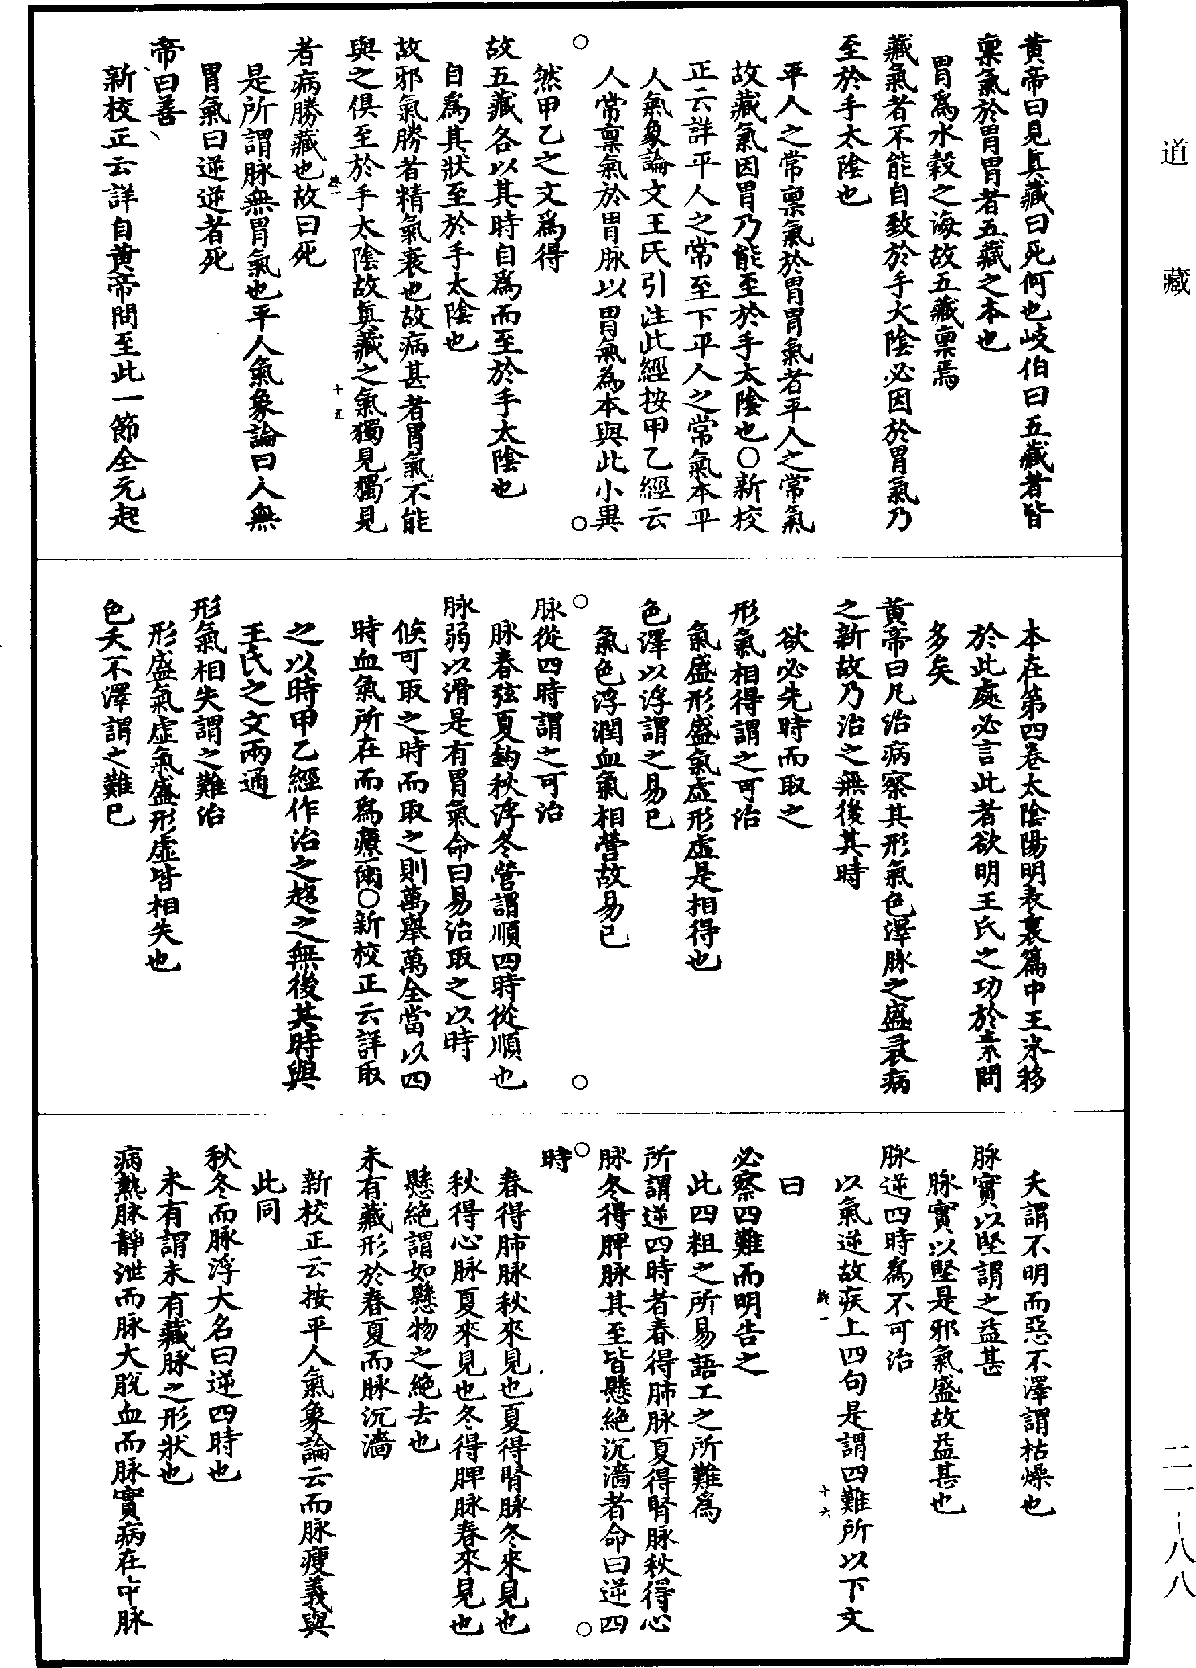 道藏
黃帝曰見真藏曰死何也岐伯曰五藏者皆
稟氣於胃胃者五藏之本也
胃爲水穀之海故五藏稟焉
藏氣者不能自致於手太陰必因於胃氣乃
至於手太陰也
平人之常稟氣於胃胃氣者平人之常氣
故藏氣因胃乃能至於手太陰也○新校
正云詳平人之常至下平人之常氣本平
人氣象論文王氏引注此經按甲乙經云
人常稟氣於胃脉以胃氣為本與此小異
然甲乙之文爲得
故五藏各以其時自爲而至於手太陰也
自爲其狀至於手太陰也
故邪氣勝者精氣衰也故病甚者胃氣不能
與之俱至於手太陰故真藏之氣獨見獨見
十五
者病勝藏也故曰死
是所謂脉無胃氣也平人氣象論曰人無
胃氣曰逆逆者死
帝曰善
新校正云詳自黃帝問至此一節全元起
本在第四卷太陰陽明表裏篇中王氷移
於此處必言此者欲明王氏之功於素問
多矣
黃帝曰凡治病察其形氣色澤脉之盛衰病
之新故乃治之無後其時
欲必先時而取之
形氣相得謂之可治
氣盛形盛氣虛形虛是相得也
色澤以浮謂之易已
氣色浮潤血氣相營故易已
脉從四時謂之可治
脉春弦夏鉤秋浮冬營謂順四時從順也
脉弱以滑是有胃氣命曰易治取之以時
候可取之時而取之則萬舉萬全當以四
時血氣所在而爲療爾○新校正云詳取
之以時甲乙經作治之趨之無後其時與
王氏之文兩通
形氣相失謂之難治
形盛氣虛氣盛形虛皆相失也
色夭不澤謂之難已
夭謂不明而惡不澤謂枯燥也
脉實以堅謂之益甚
脉實以堅是邪氣盛故益甚也
脉逆四時爲不可治
以氣逆故疾上四句是謂四難所以下文
十六
曰
必察四難而明告之
此四粗之所易語工之所難爲
所謂逆四時者春得肺脉夏得腎脉秋得心
脉冬得脾脉其至皆懸絕沉濇者命曰逆四
時
春得肺脉秋來見也夏得腎脉冬來見也
秋得心脉夏來見也冬得脾脉春來見也
懸絕謂如懸物之絕去也
未有藏形於春夏而脉沉濇
新校正云按平人氣象論云而脉瘦義與
此同
秋冬而脉浮大名曰逆四時也
未有謂未有藏脉之形狀也
病熱脉靜泄而脉大脫血而脉實病在中脉
二一-八八